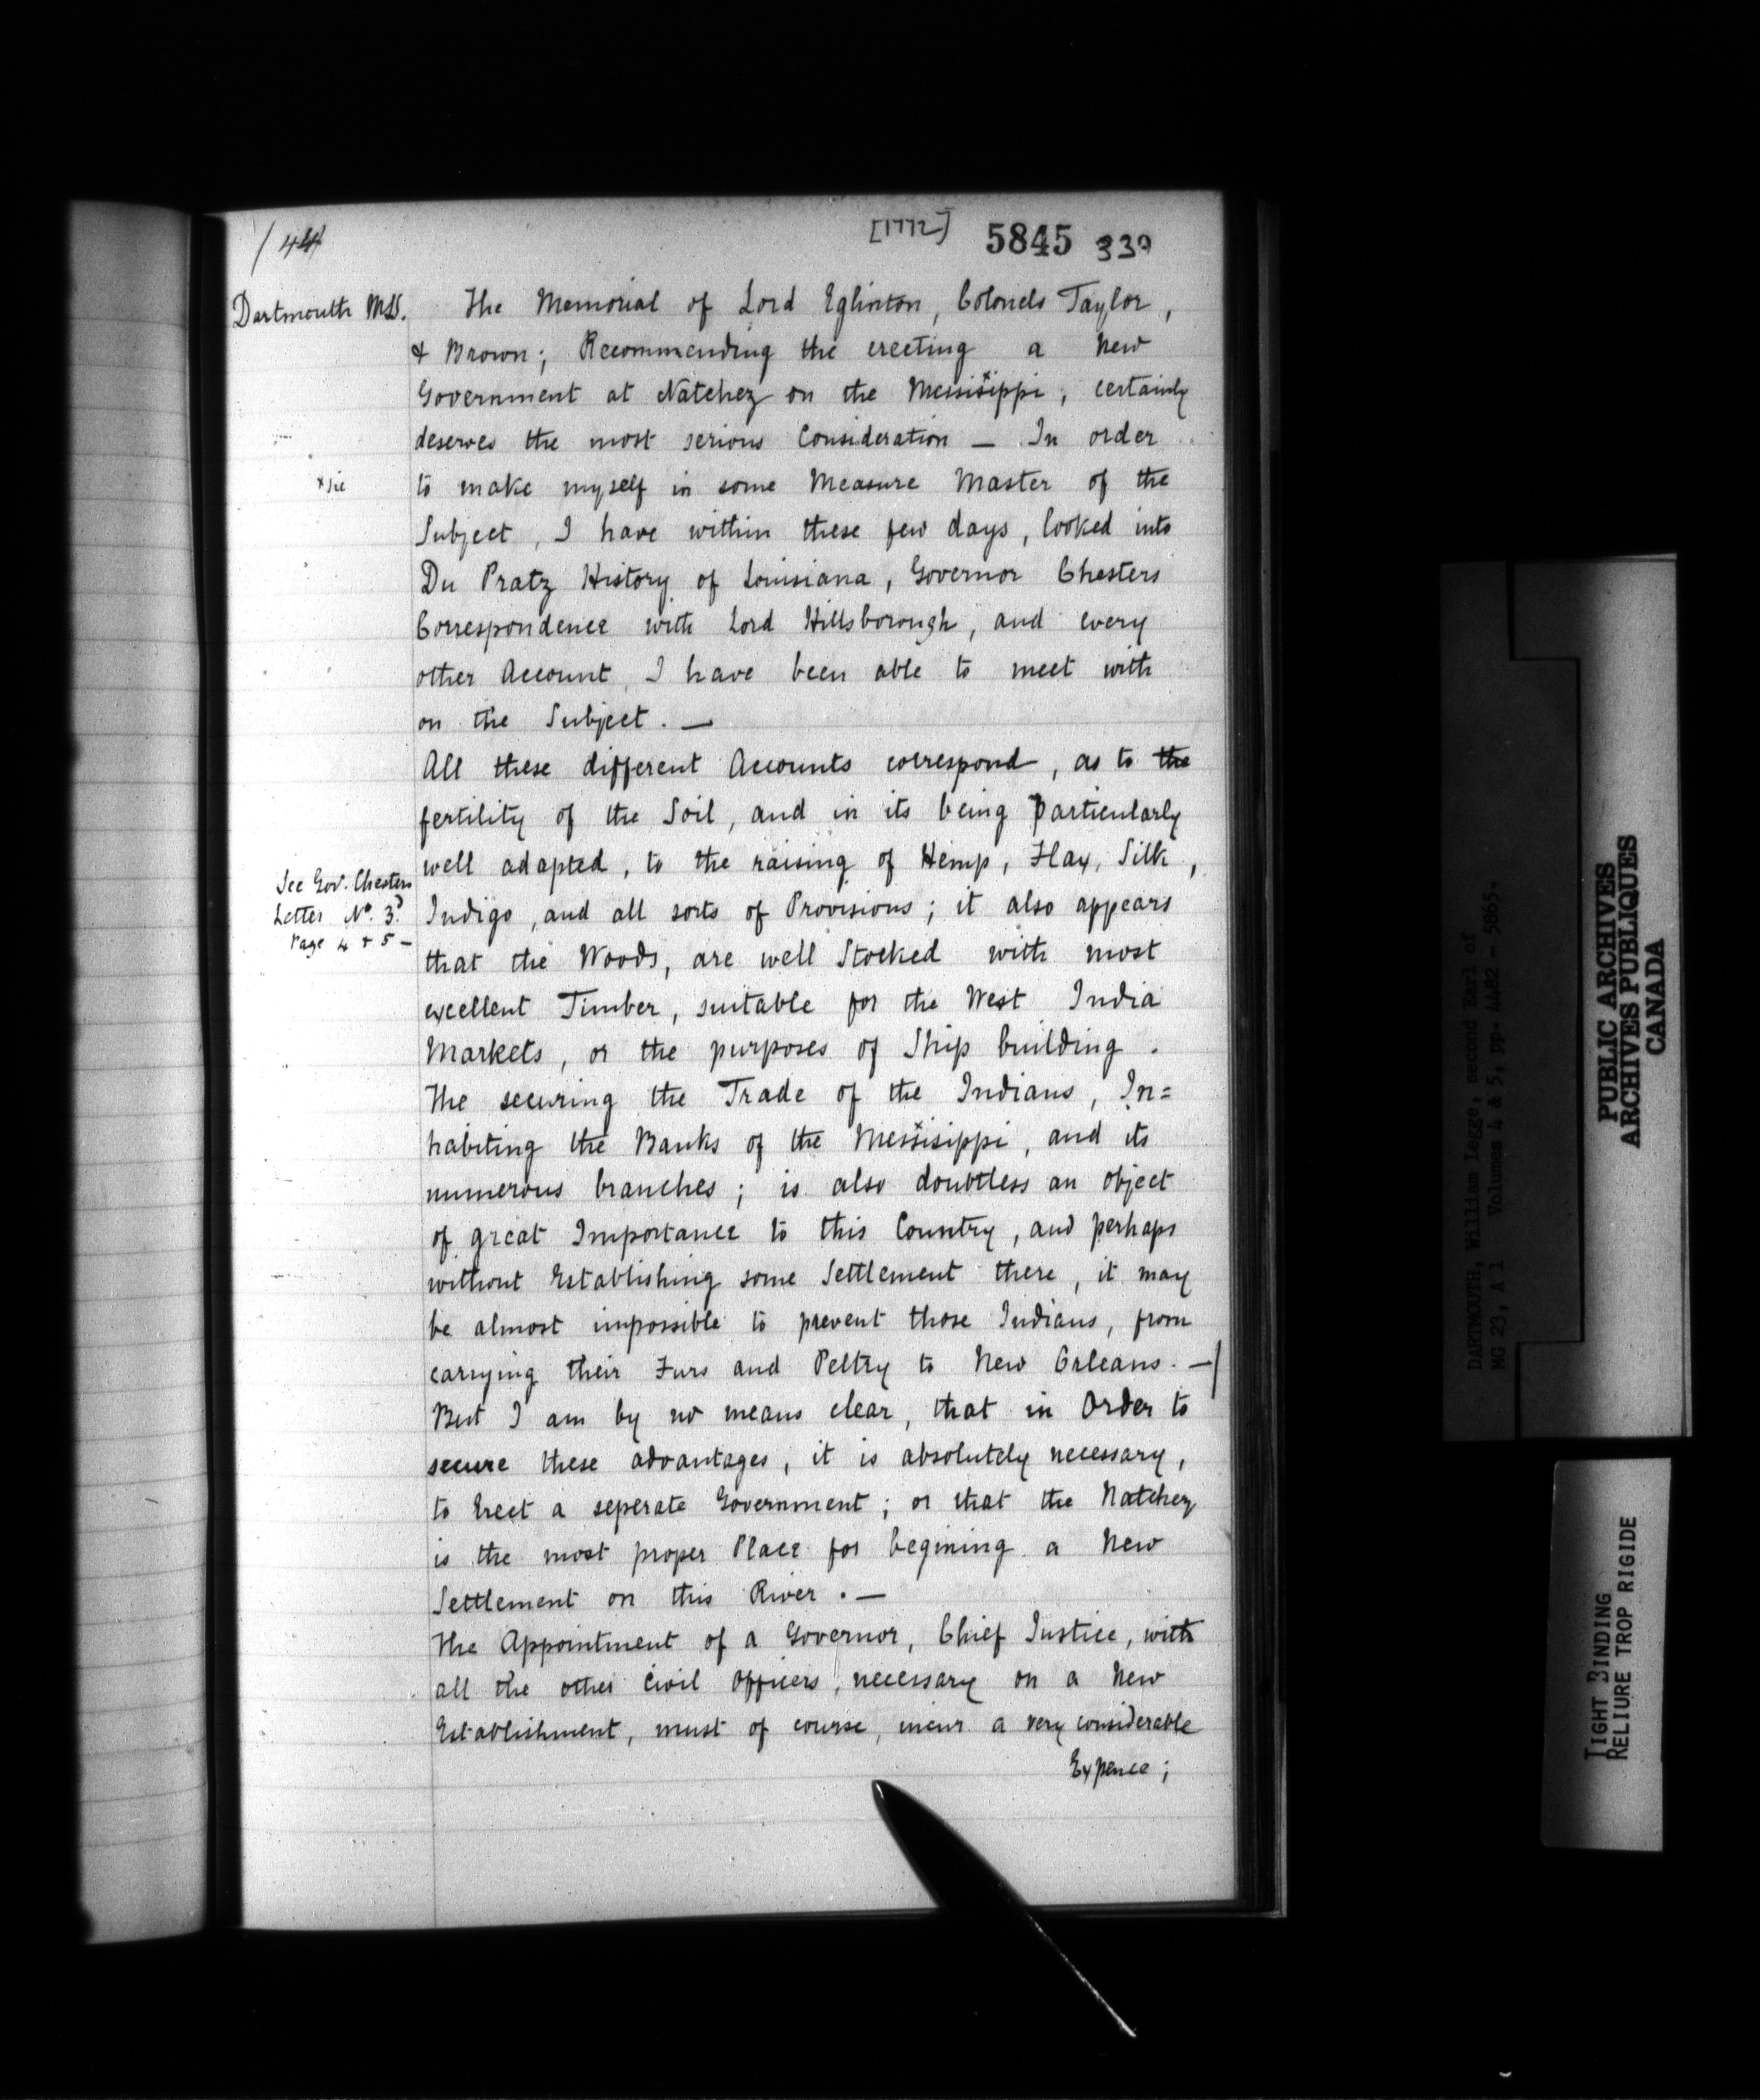 / 44
[1772] 5845 330
Dartmouth MSS.
The Memorial of Lord Eglinton, Colonels Taylor,
& Brown; Recommending the erecting a New
Government at Natchez on the Messisippi, certainly
deserves the most serious Consideration — In order
x sic
to make myself in some Measure Master of the
Subject, I have within these few days, looked into
Du Pratz History of Louisiana, Governor Chesters
Correspondence with Lord Hillsborough, and every
other Account, I have been able to meet with
on the Subject. —
All these different Accounts correspond, as to the
fertility of the Soil, and in its being particularly
well adapted, to the raising of Hemp, Flax, Silk,
See Gov. Chesters
Letter No. 3d
Page 4 & 5 —
Indigo, and all sorts of Provisions; it also appears
that the Woods, are well Stocked with most
excellent Timber, suitable for the West India
Markets, or the purposes of Ship building.
The securing the Trade of the Indians, In=
habiting the Banks of the Messisippi, and its
numerous branches; is also doubtless an object
of great Importance to this Country, and perhaps
without Establishing some Settlement there, it may
be almost impossible to prevent those Indians, from
carrying their Furs and Peltry to New Orleans. —
But I am by no means clear, that in Order to
secure these advantages, it is absolutely necessary,
to Erect a seperate Government; or that the Natchez
is the most proper Place for begining a New
Settlement on this River. —
The Appointment of a Governor, Chief Justice, with
all the other Civil Officers, necessary on a New
Establishment, must of course, incur a very considerable
Expence;
DARTMOUTH, William Legge, second Earl of
MG 23, A 1 Volumes 4 & 5, pp. 4482 - 5865.
PUBLIC ARCHIVES
ARCHIVES PUBLIQUES
CANADA
TIGHT BINDING
RELIURE TROP RIGIDE